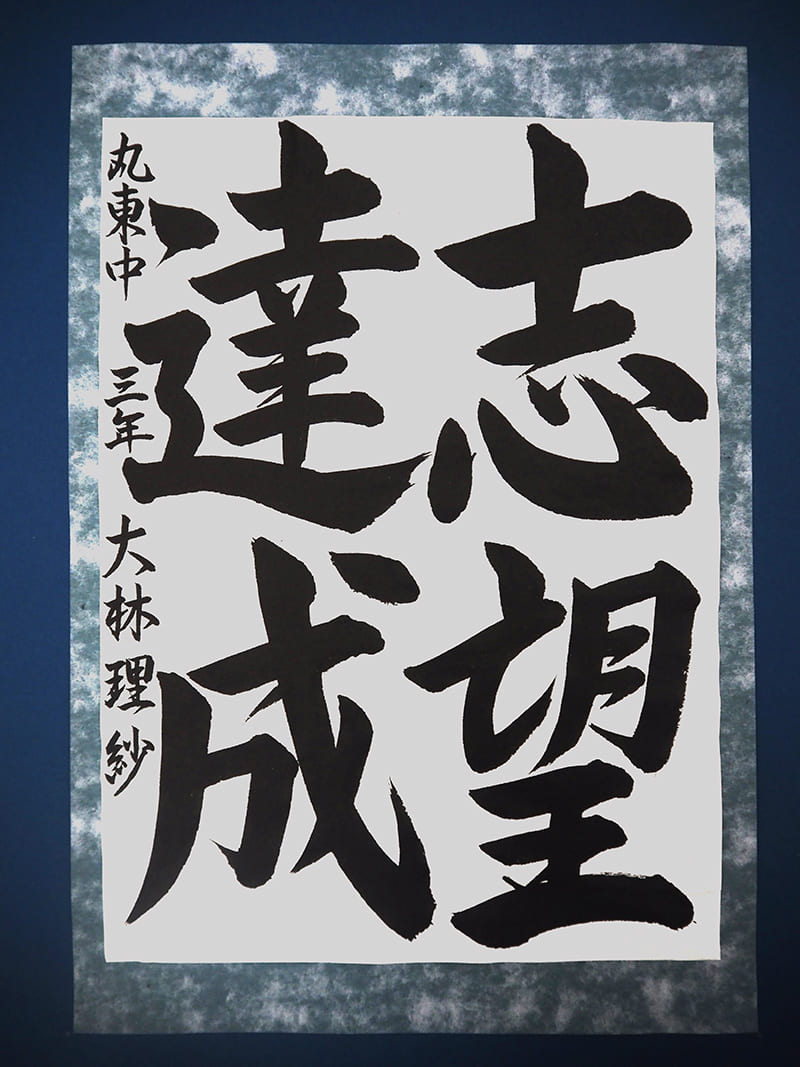 志望
達成
丸東中 三年 大林理紗